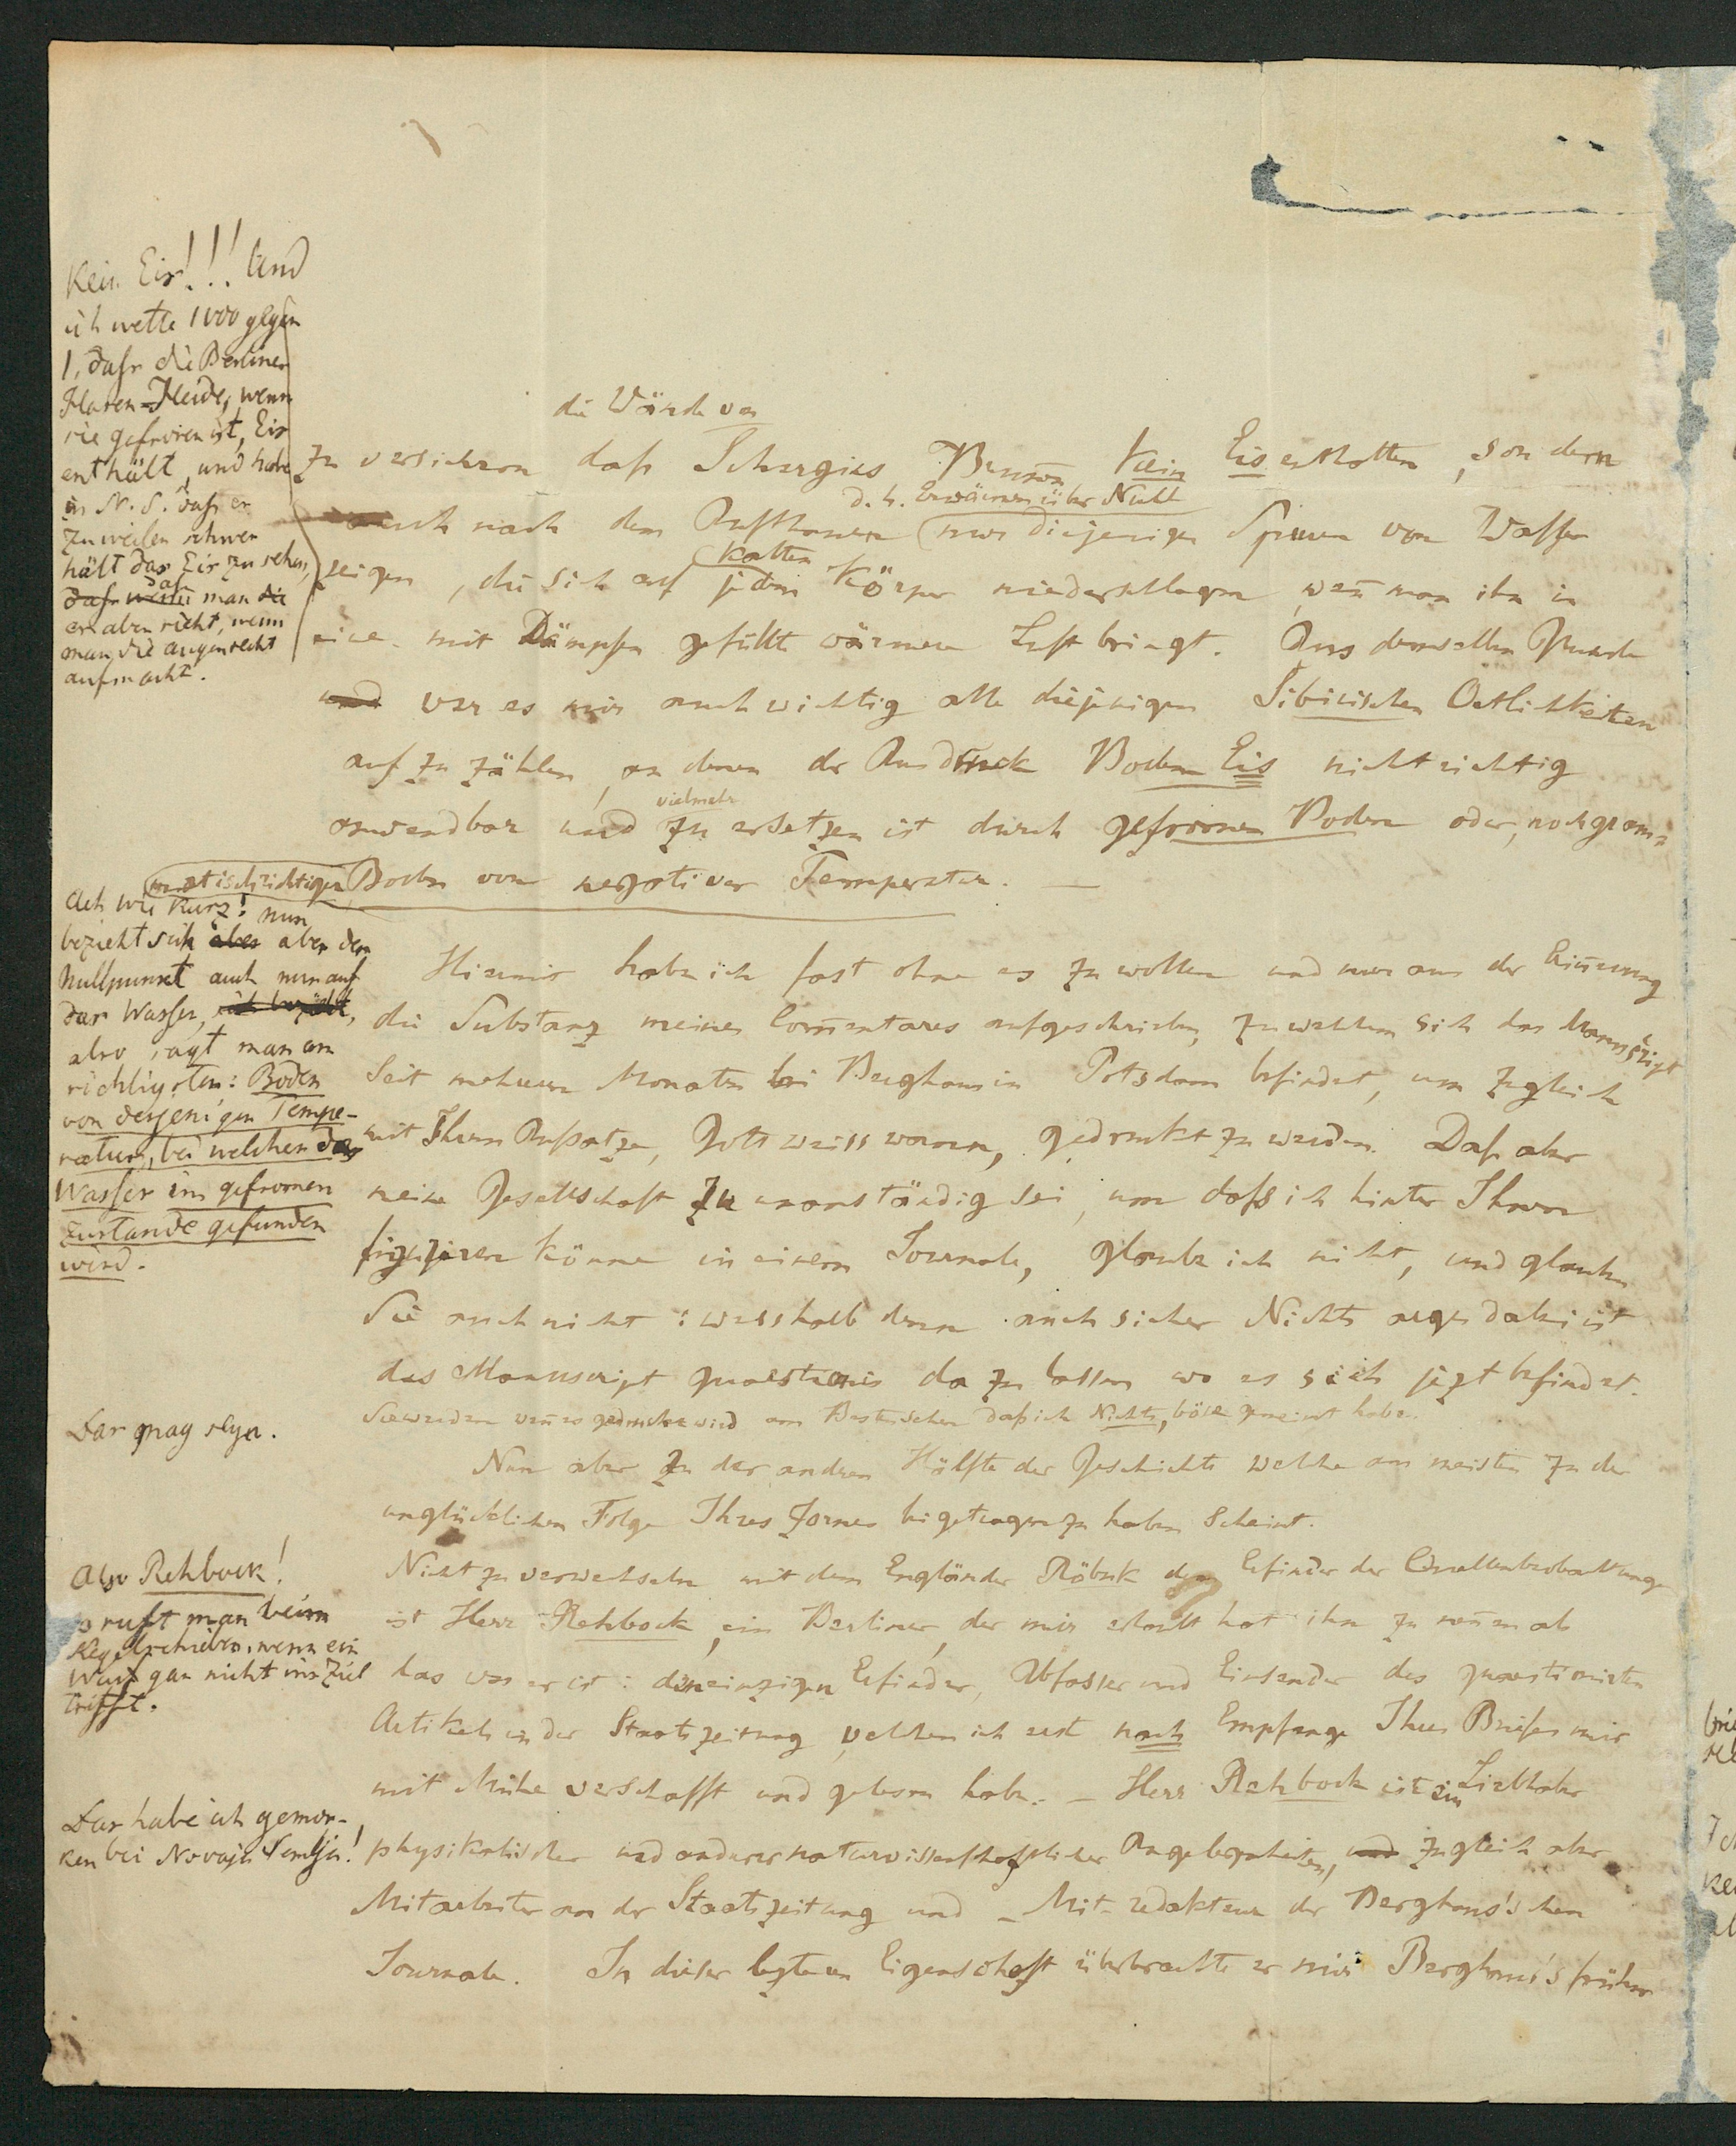 Kein Eis!!! Und
ich wette 1000 gegen
1, dass die Berliner
Hasen-Heide, wenn
sie gefroren ist, Eis
enthält, und habe
in N. S. dass es
zuweilen schwer
hält das Eis zu sehen,
dass man die
es aber sieht, wenn
man die Augen recht
aufmacht.
die Wände von
zu versichern dass Schergins Brunnen kein Eis enthalten, sondern
d. h. Erwärmen über Null
auch nach dem Aufthauen nur diejenigen Spuren von Wasser
kalten
zeigen, die sich auf jedem Körper niederschlagen, wenn man ihn in
eine mit Dämpfen gefüllte wärmere Luft bringt. Aus demselben Grunde
und war es mir auch wichtig alle diejenigen Sibirischen Oertlichkeiten
aufzuzählen, an denen der Ausdruck Boden Eis nicht richtig
vielmehr
anwendbar und zu ersetzen ist durch gefrornen Boden oder, noch gram-
matisch richtiger Boden von negativer Temperatur. —
Ach wie kurz! nun
bezieht sich aber aber der
Nullpunkt auch nur auf
das Wasser,
also sagt man am
richtigsten: Boden
von derjenigen Tempe-
ratur, bei welcher das
Wasser im gefrornen
Zustande gefunden
wird.
Hiermit habe ich fast ohne es zu wollen und nur aus der Erinnerung
die Substanz meines Commentares aufgeschrieben, zu welchem sich das Manuscript
seit mehreren Monaten bei Berghaus in Potsdam befindet, um zugleich
mit Ihrem Aufsatze, Gott weiss wann, gedruckt zu werden. Dass aber
meine Gesellschaft zu unanständig sei, um dass ich hinter Ihnen
figuriren könne in einem Journale, glaube ich nicht, und glauben
Sie auch nicht: wesshalb denn auch sicher Nichts arges dabei ist
das Manuscript quaestionis da zu lassen wo es sich jezt befindet.
Sie werden wenn es gedruckt wird am Besten sehen dass ich Nichts böse gemeint habe.
Das mag seyn.
Nun aber zu der andren Hälfte der Geschichte welche am meisten zu der
unglücklichen Folge Ihres Zornes beigetragen zu haben scheint.
Also Rehbock!
so ruft man beim
Kegelschieben, wenn ein
Wurf gar nicht ins Ziel
trifft.
Nicht zu verwechseln mit dem Engländer Röbuk dem Erfinder der Quellenbeobachtungen
ist Herr Rehbock, ein Berliner, der mir erlaubt hat ihn zu nennen als
das was er ist: den einzigen Erfinder, Abfasser und Einsender des quaestionirten
Artikels in der Staatszeitung, welchen ich erst nach Empfange Ihres Briefes mir
mit Mühe verschafft und gelesen habe. — Herr Rehbock ist ein Liebhaber
Das habe ich gemer-
ken bei Novaja Semlja!
physikalischer und anderer naturwissenschaftlicher Angelegenheiten, und zugleich aber
Mitarbeiter an der Staatszeitung und – Mit-redakteur der Berghaus'schen
Journale. In dieser leztern Eigenschaft überbrachte er mir Berghaus's frühere